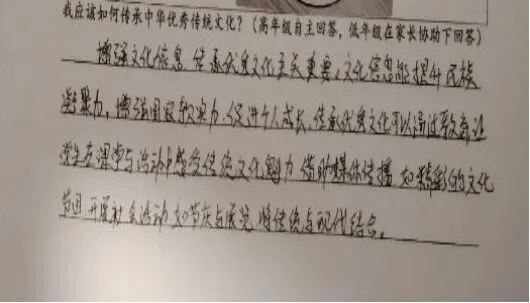 我应该如何传承中华优秀传统文化？（高年级自主回答，低年级在家长协助下回答）
增强文化信息，传承优秀文化至关重要，文化信息能提升民族
凝聚力，增强国家软实力，促进个人成长，传承优秀文化可以通过教育让
学生在课堂与活动中感受传统文化魅力，借助媒体传播，如精彩的文化
节目，开展社会活动如节庆与展览，将传统与现代结合。